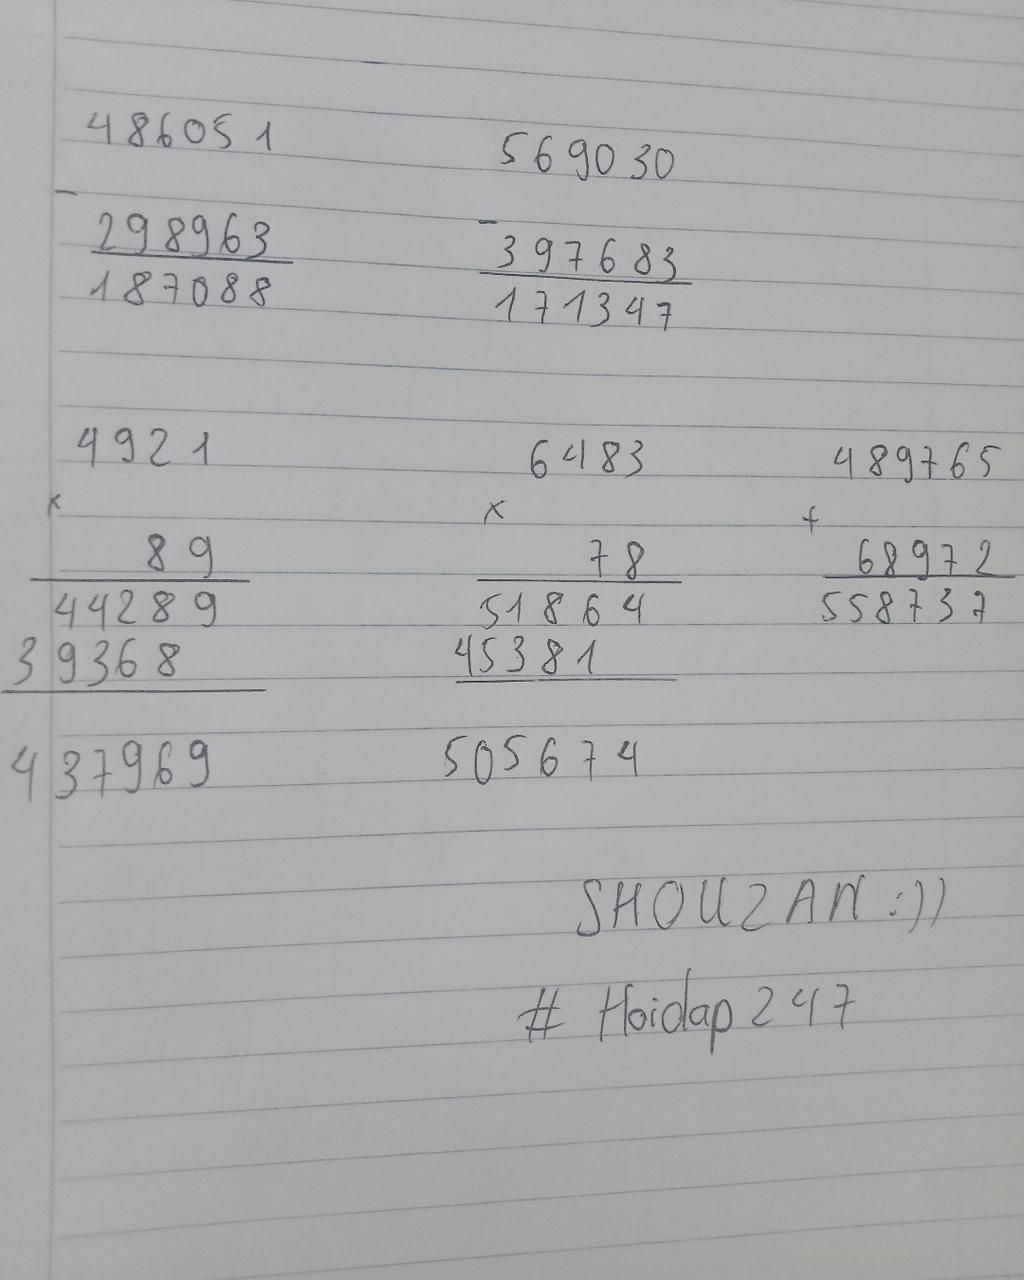 486051 569030
- -
298963 397683
187088 171347
4921 6483 489765
x x +
89 78 68972
44289 51864 558737
39368 45381
437969 505674
SHOUZAN :))
# Hoidap 247